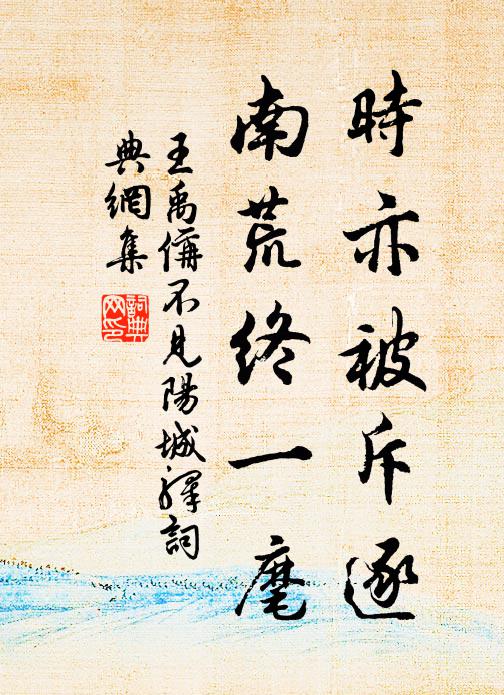 時亦被斥逐
南荒終一麾
王禹偁不見陽城驛詞
典網集
詞典
网印